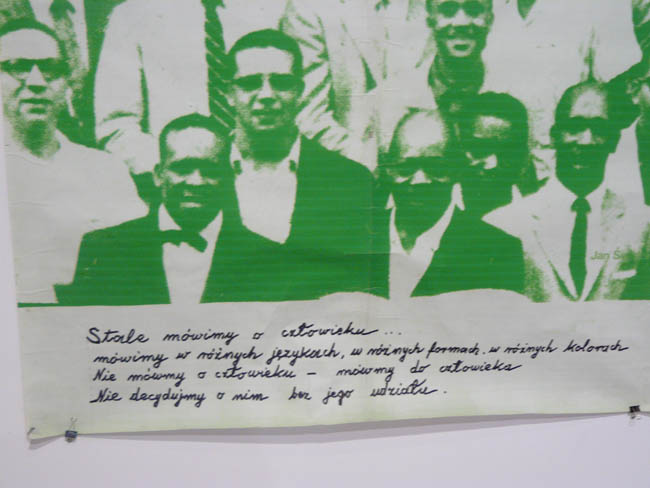 Jan
Stale mówimy o człowieku ...
mówimy w różnych językach, w różnych formach, w różnych kolorach
Nie mówmy o człowieku – mówmy do człowieka
Nie decydujmy o nim bez jego udziału.